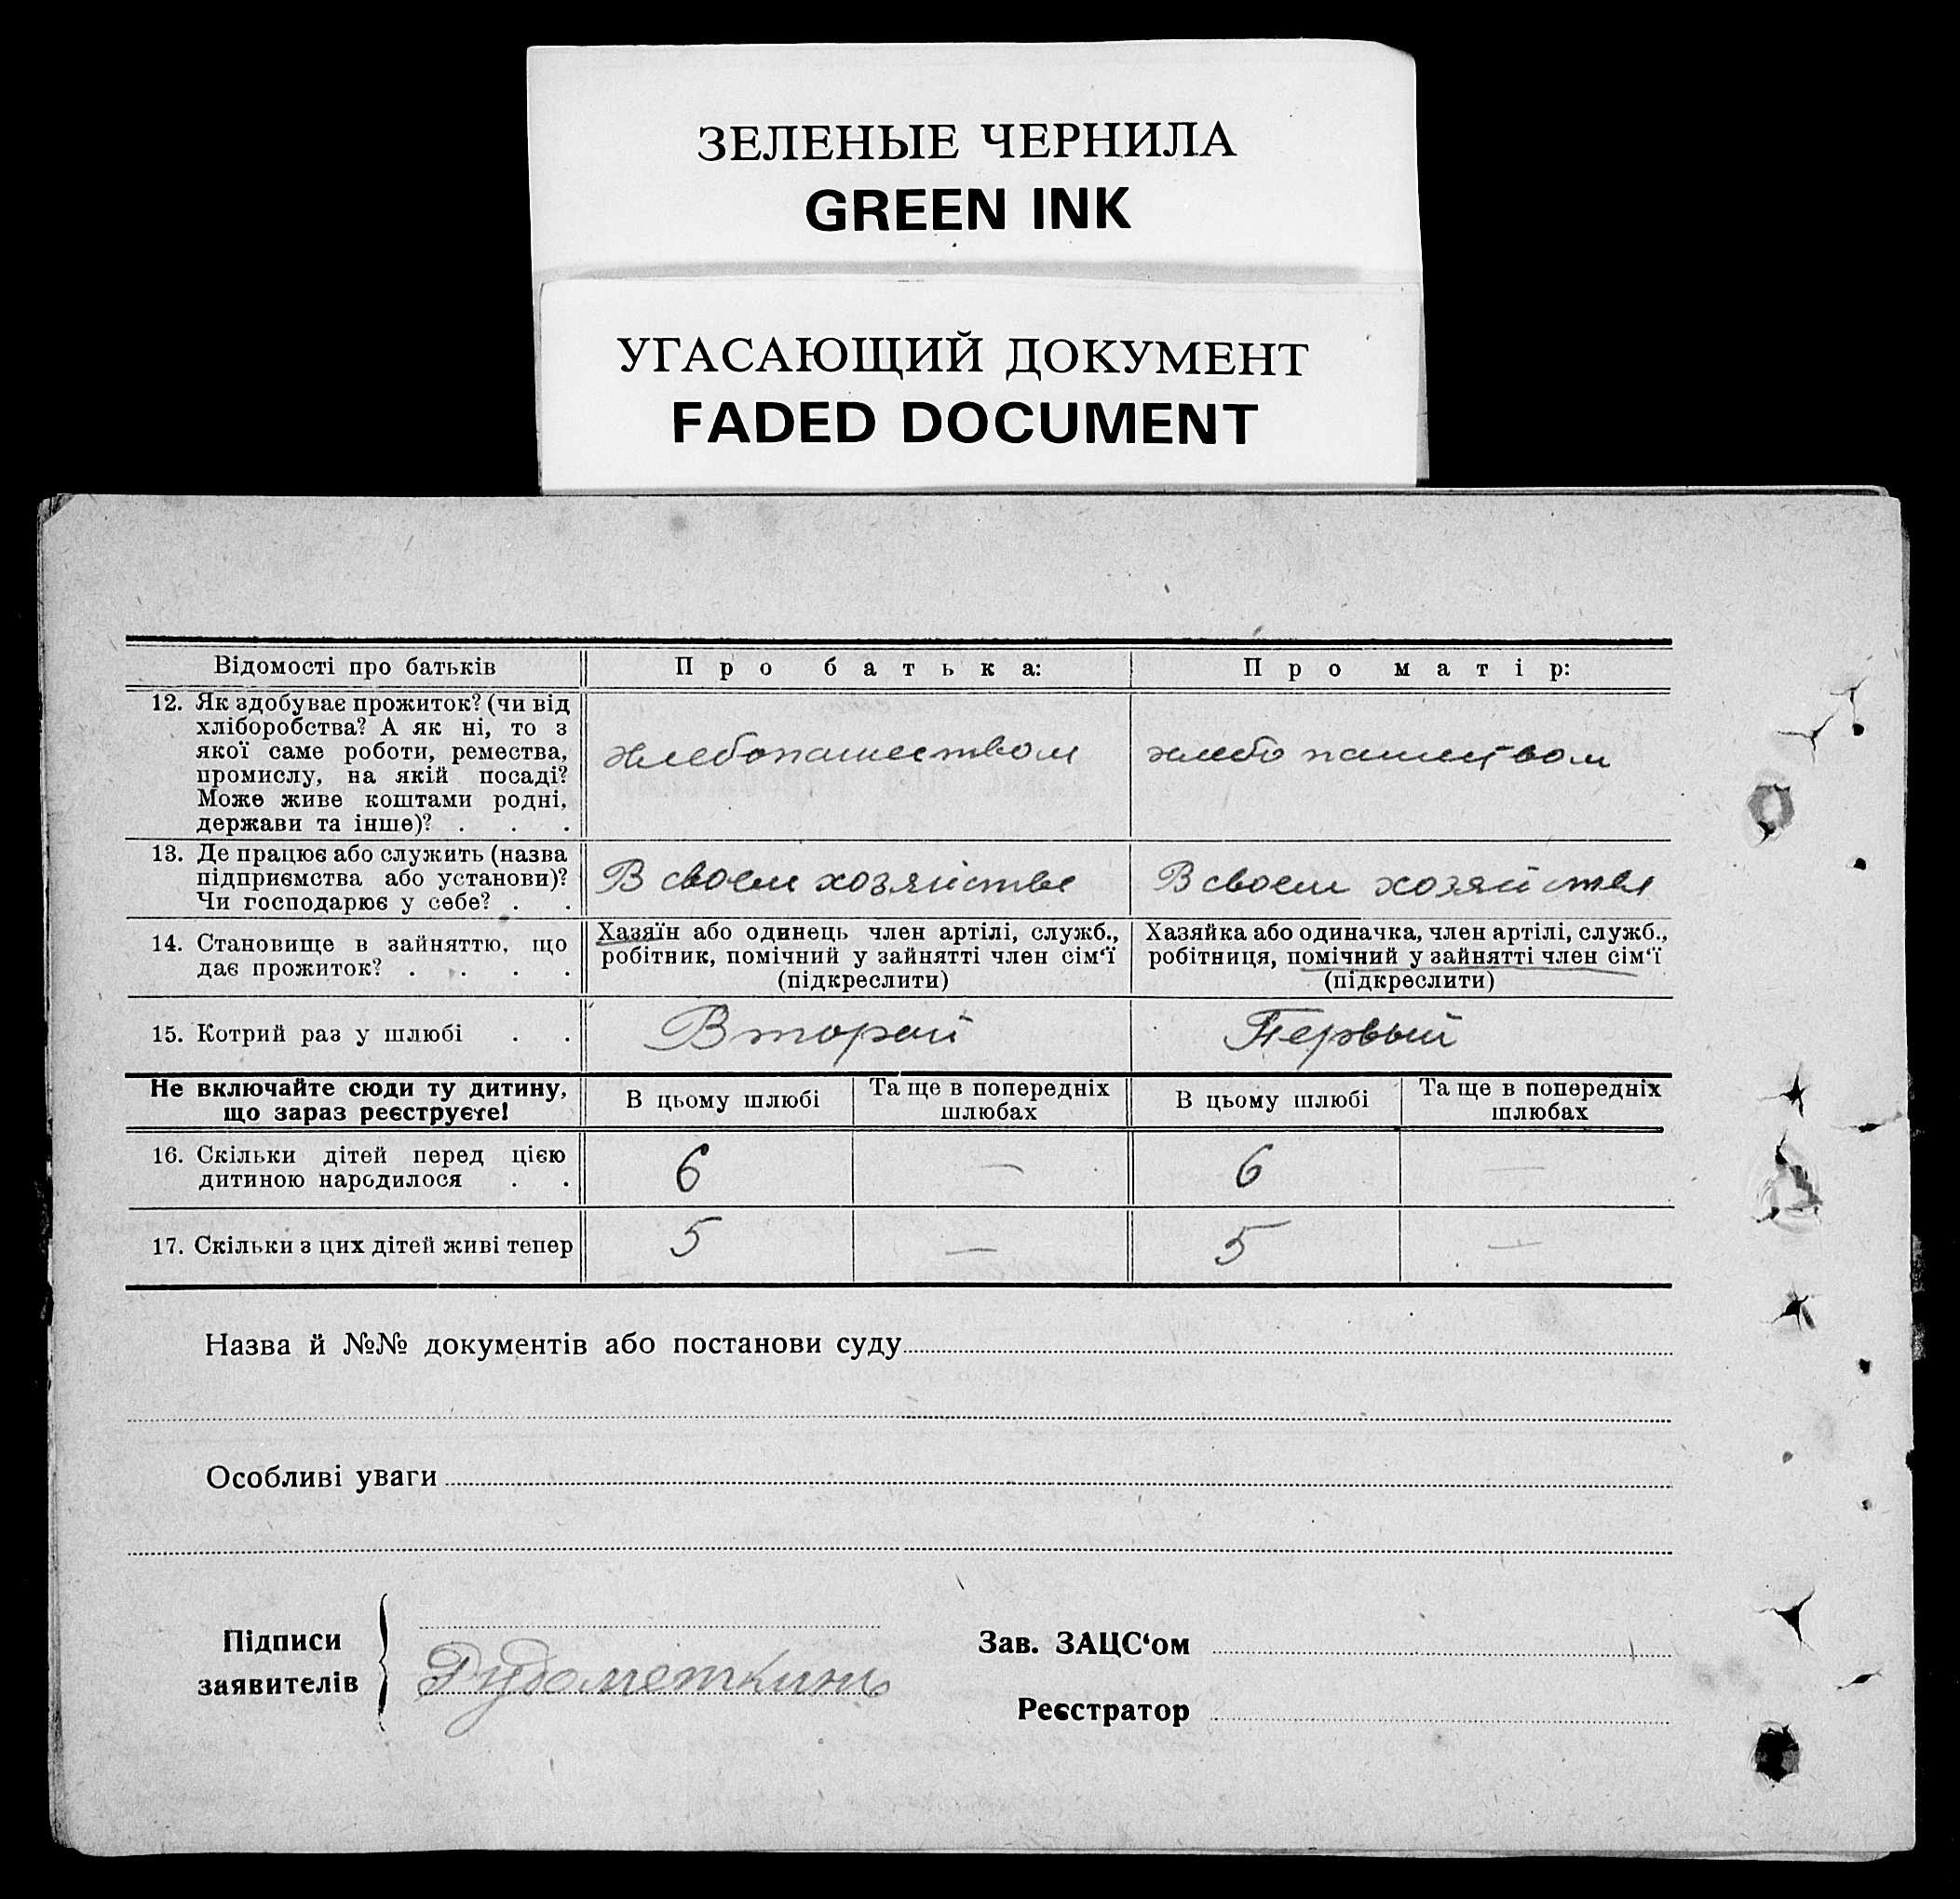 ЗЕЛЕНЫЕ ЧЕРНИЛА
GREEN INK
УГАСАЮЩИЙ ДОКУМЕНТ
FADED DOCUMENT
Відомості про батьків
Про батька:
Про матір:
12. Як здобуває прожиток? (чи від
хліборобства? А як ні, то з
якої саме роботи, ремества,
промислу, на якій посаді?
Може живе коштами родні,
держави та інше)? . . .
хлебопашеством
хлебопашеством
13. Де працює або служить (назва
підприємства або установи)?
Чи господарює у себе? . .
В своем хозяйстве
В своем хозяйстве
14. Становище в зайняттю, що
дає прожиток? . . . .
Хазяїн або одинець член артілі, служб.,
робітник, помічний у зайнятті член сім‘ї
(підкреслити)
Хазяйка або одиначка, член артілі, служб.,
робітниця, помічний у зайнятті член сім‘ї
(підкреслити)
15. Котрий раз у шлюбі . .
Второй
Первый
Не включайте сюди ту дитину,
що зараз реєструєте!
В цьому шлюбі
Та ще в попередніх
шлюбах
В цьому шлюбі
Та ще в попередніх
шлюбах
16. Скільки дітей перед цією
дитиною народилося . .
6
—
6
—
17. Скільки з цих дітей живі тепер
5
—
5
—
Назва й №№ документів або постанови суду
Особливі уваги
Підписи
заявителів
Рудометкинъ
Зав. ЗАЦС‘ом
Реєстратор